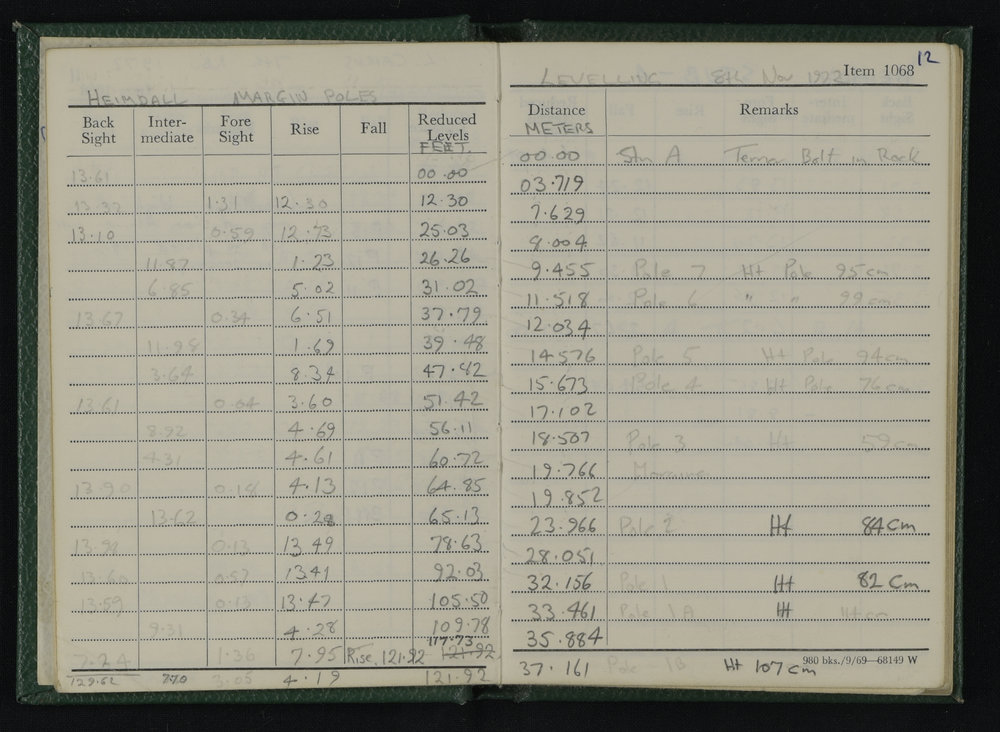 HEIMDALL MARGIN POLES
Back Sight Inter-mediate Fore Sight Rise Fall Reduced Levels FEET
13.61 00.00
13.32 1.31 12.30 12.30
13.10 0.59 12.73 25.03
11.87 1.23 26.26
6.85 5.02 31.02
13.67 0.34 6.51 37.79
11.98 1.69 39.48
3.64 8.34 47.82
13.61 0.04 3.60 51.42
8.92 4.69 56.11
4.31 4.61 60.72
13.90 0.18 4.13 64.85
13.62 0.28 65.13
0.13 13.49 78.63
0.57 13.41 92.03
13.59 0.13 13.47 105.50
9.31 4.28 109.78
117.73
1.36 7.95 Rise, 121.92 121.92
129.62 7.70 3.05 4.19 121.92
12
LEVELLING 8th Nov 1973 Item 1068
Distance METERS Remarks
00.00 Stn A Bolt in Rock
03.719
7.629
8.004
9.455 Pole 7 Ht Pole 95cm
11.518 Pole 6 " " 99cm
12.034
14.576 Pole 5 Ht Pole 94cm
15.673 Pole 4 Ht Pole 76cm
17.102
18.507 Pole 3 Ht 59cm
19.766 Moraine
19.852
23.966 Pole 2 Ht 84cm
28.051
32.156 Pole 1 Ht 82 Cm
33.461 Pole 1A Ht 114cm
35.884
37.161 Pole 1B Ht 107cm
980 bks./9/69—68149 W